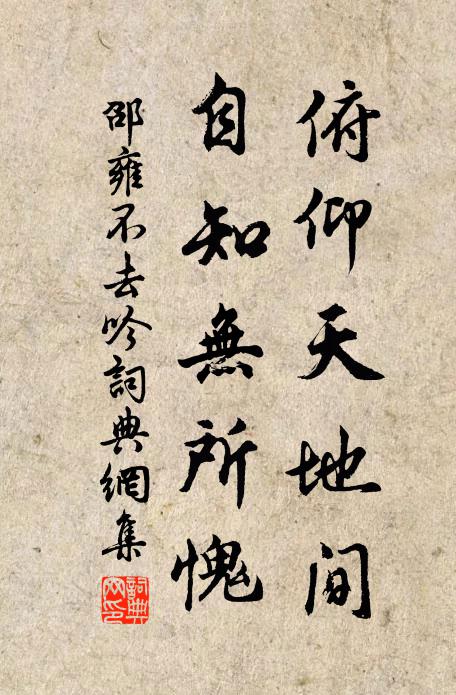 俯仰天地間
自知無所愧
邵雍不去吟詞典網集
詞典網印